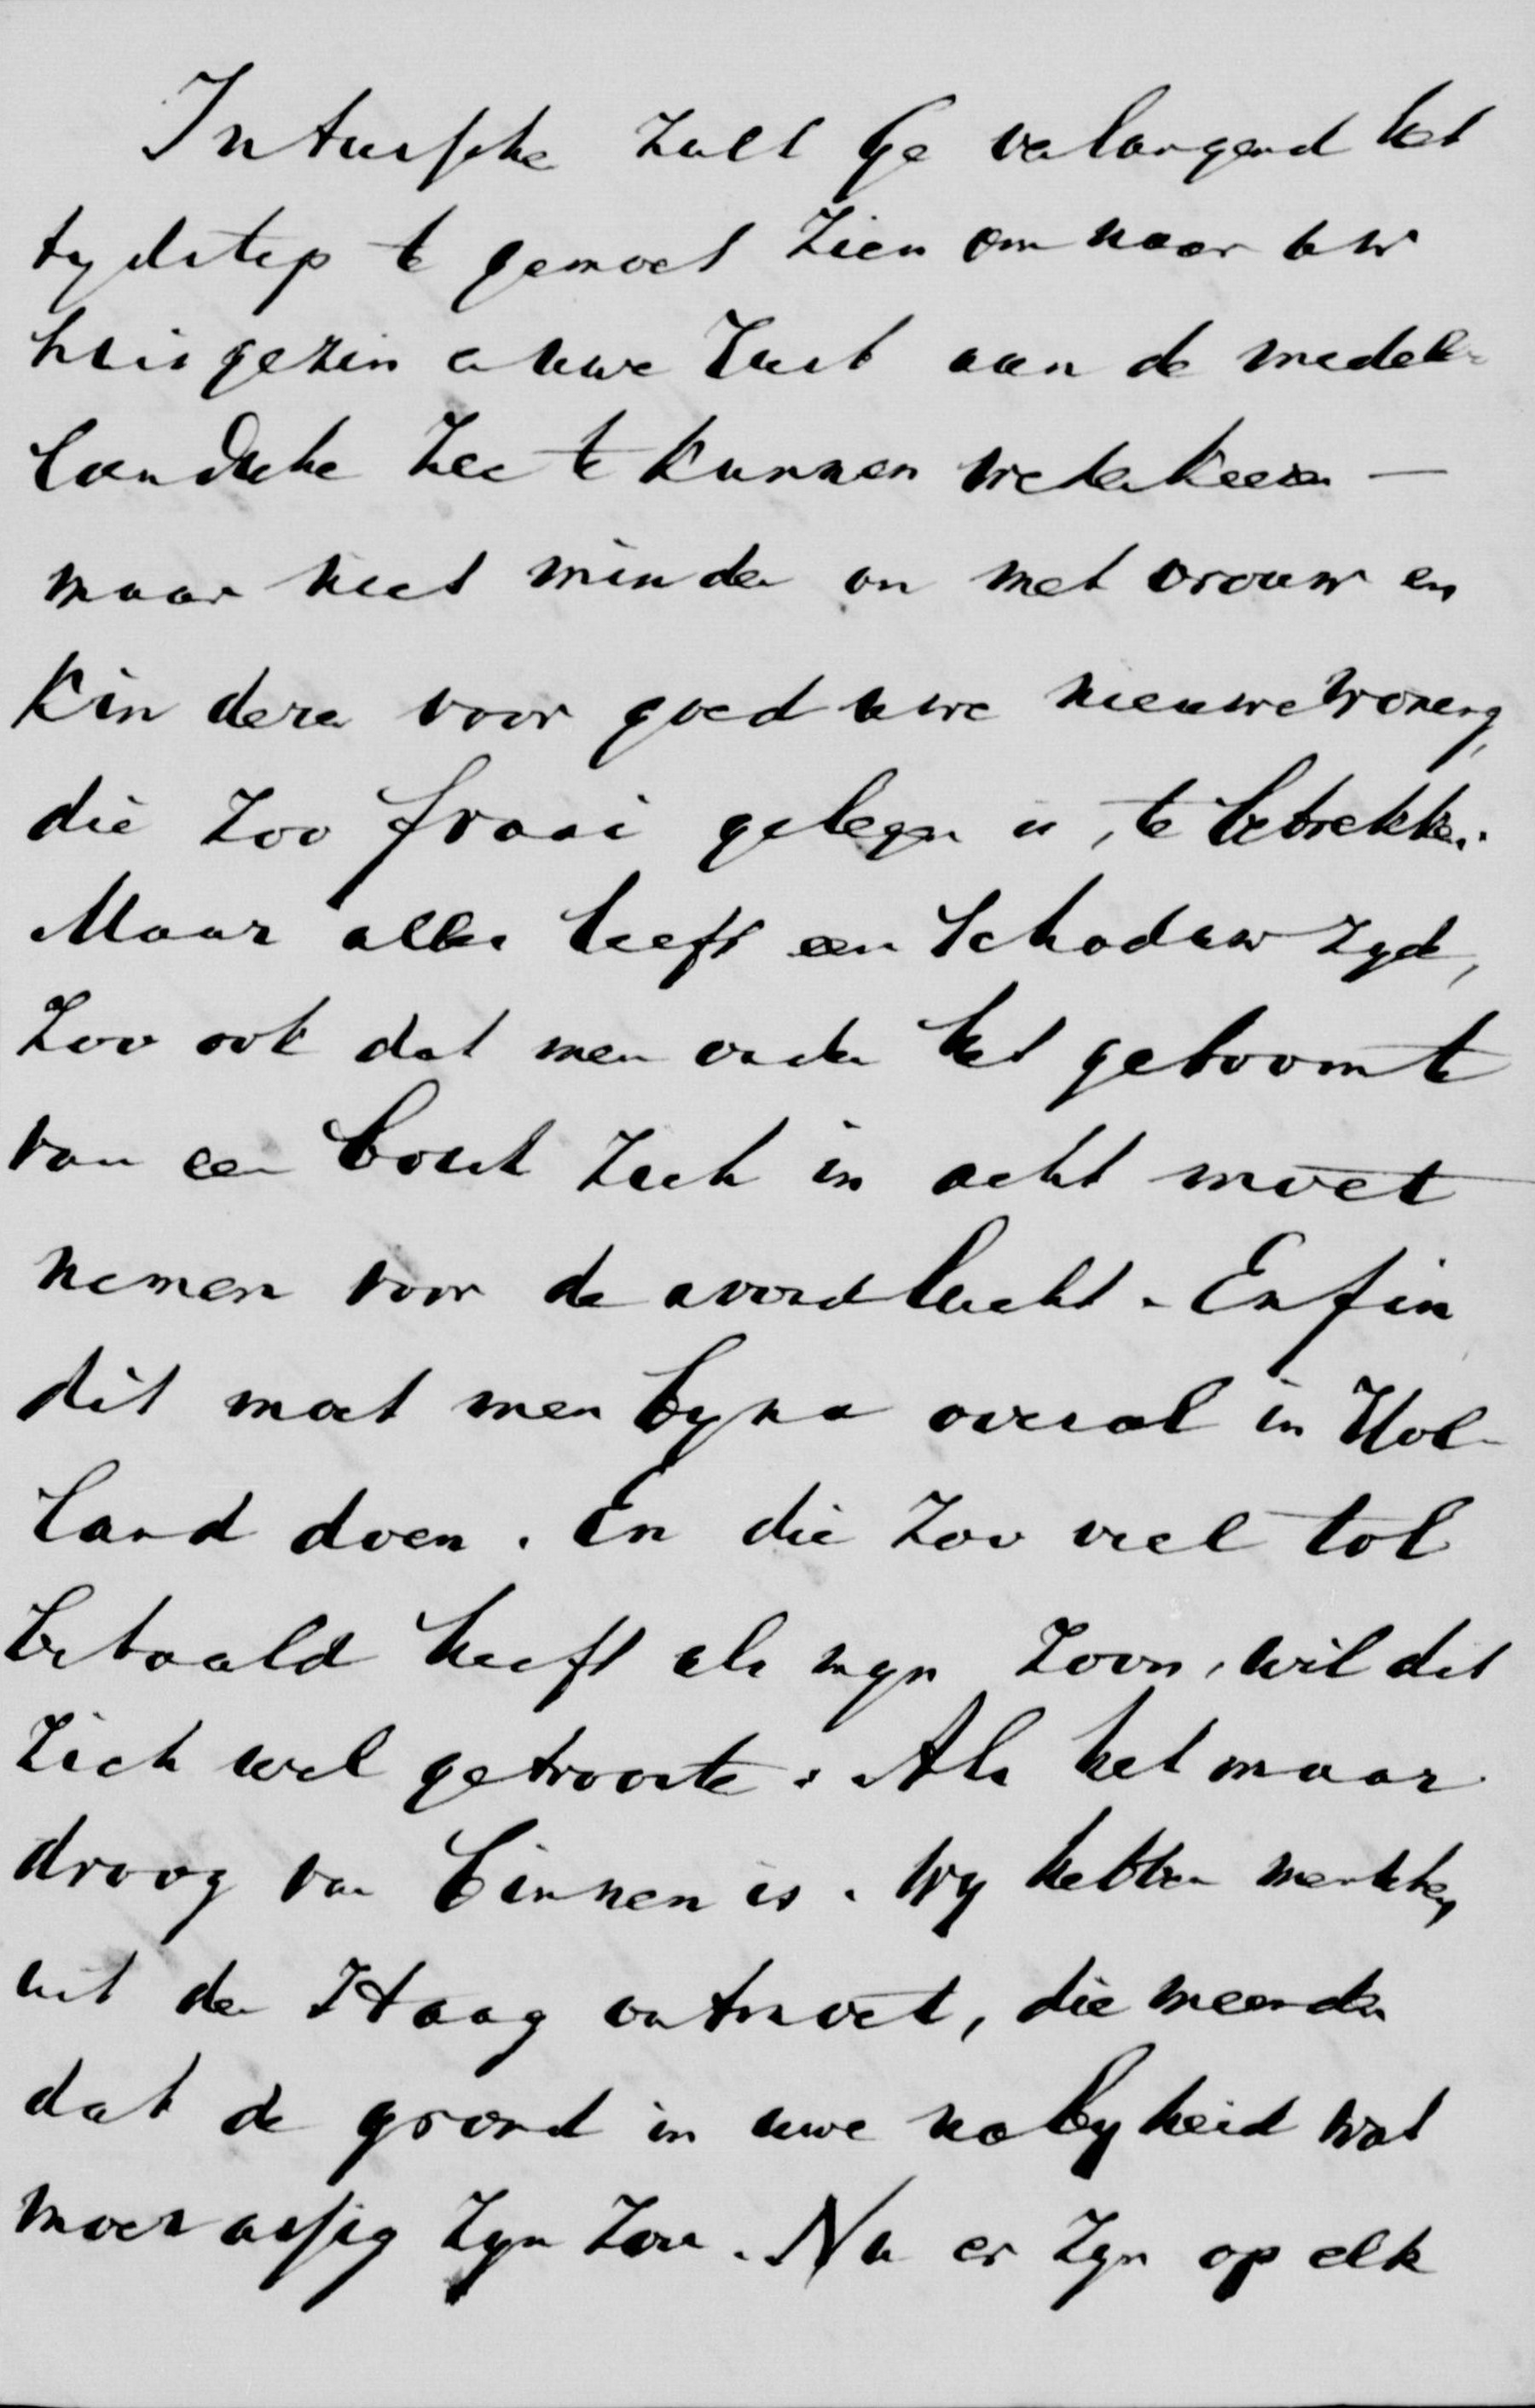 Intusschen zult Ge verlangend het
tydstip te gemoet zien om naar uw
huisgezin en uwe Zust aan de middel-
landsche Zee te kunnen wederkeeren —
maar niet minder om met vrouw en
kinderen voor goed uwe nieuwe woning,
die zoo fraai gelegen is, te betrekken.
Maar alles heeft een schaduw zyde,
zoo ook dat men onder het geboomte
van een bosch zich in acht moet
nemen voor de avondlucht. Enfin
dit moet men byna overal in Hol-
land doen. En die zoo veel tol
betaald heeft als myn zoon, wil dit
zich wel getroosten. Als het maar
droog van binnen is. Wy hebben menschen
uit den Haag ontmoet, die meenden
dat de grond in uwe nabyheid wat
moerassig zyn zou. Nu er zyn op elk